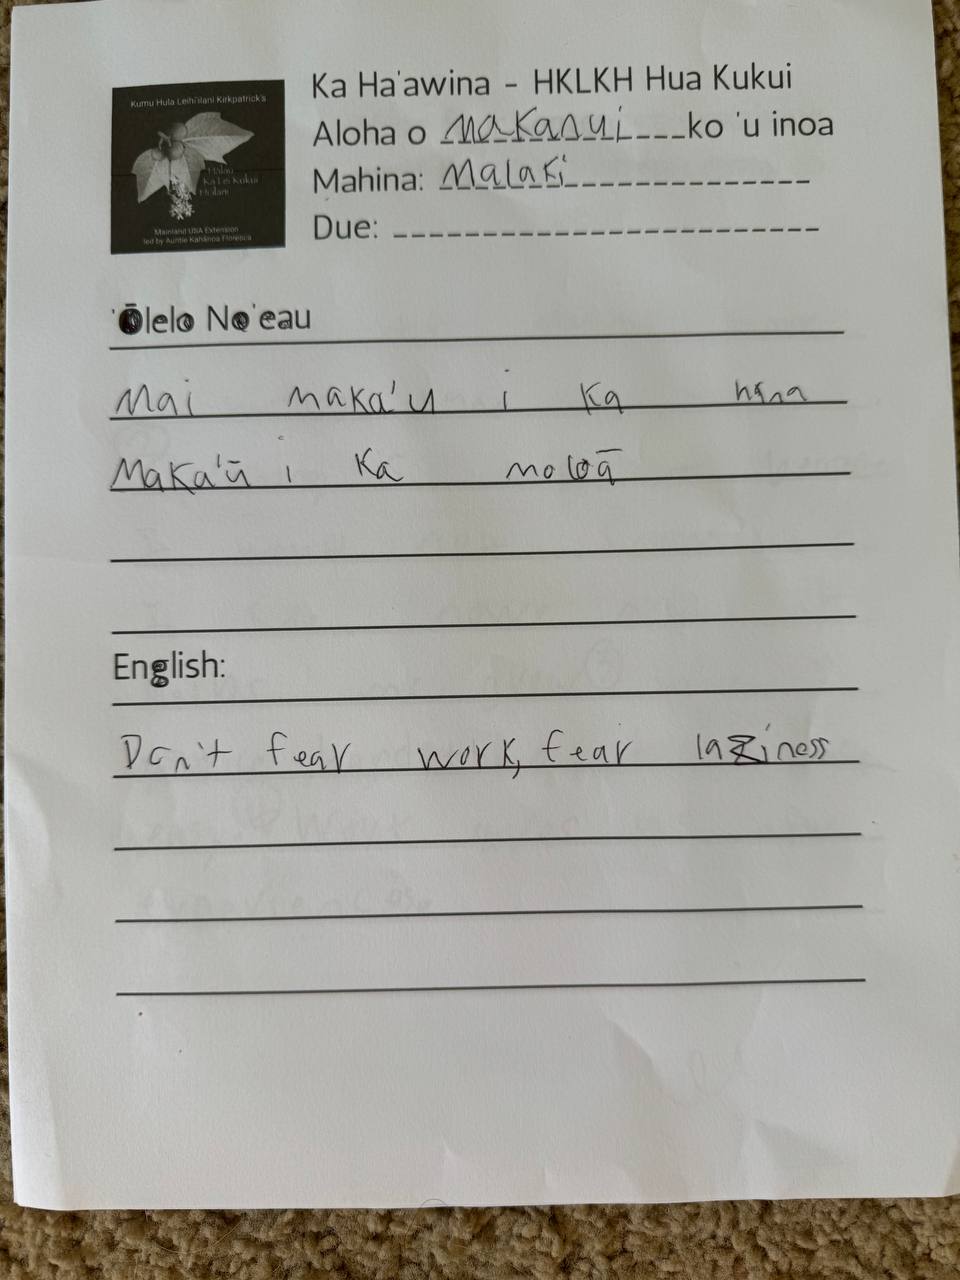 Kumu Hula Leihi'ilani Kirkpatrick's
Hālau
Ka Lei Kukui
Hi'ilani
Mainland USA Extension
led by Auntie Kahanoa Floresca
Ka Ha'awina - HKLKH Hua Kukui
Aloha o Makanui ko 'u inoa
Mahina: Malaki
Due:
'Ōlelo No'eau
Mai maka'u i ka hana
Maka'ū i ka moloā
English:
Don't fear work, fear laziness